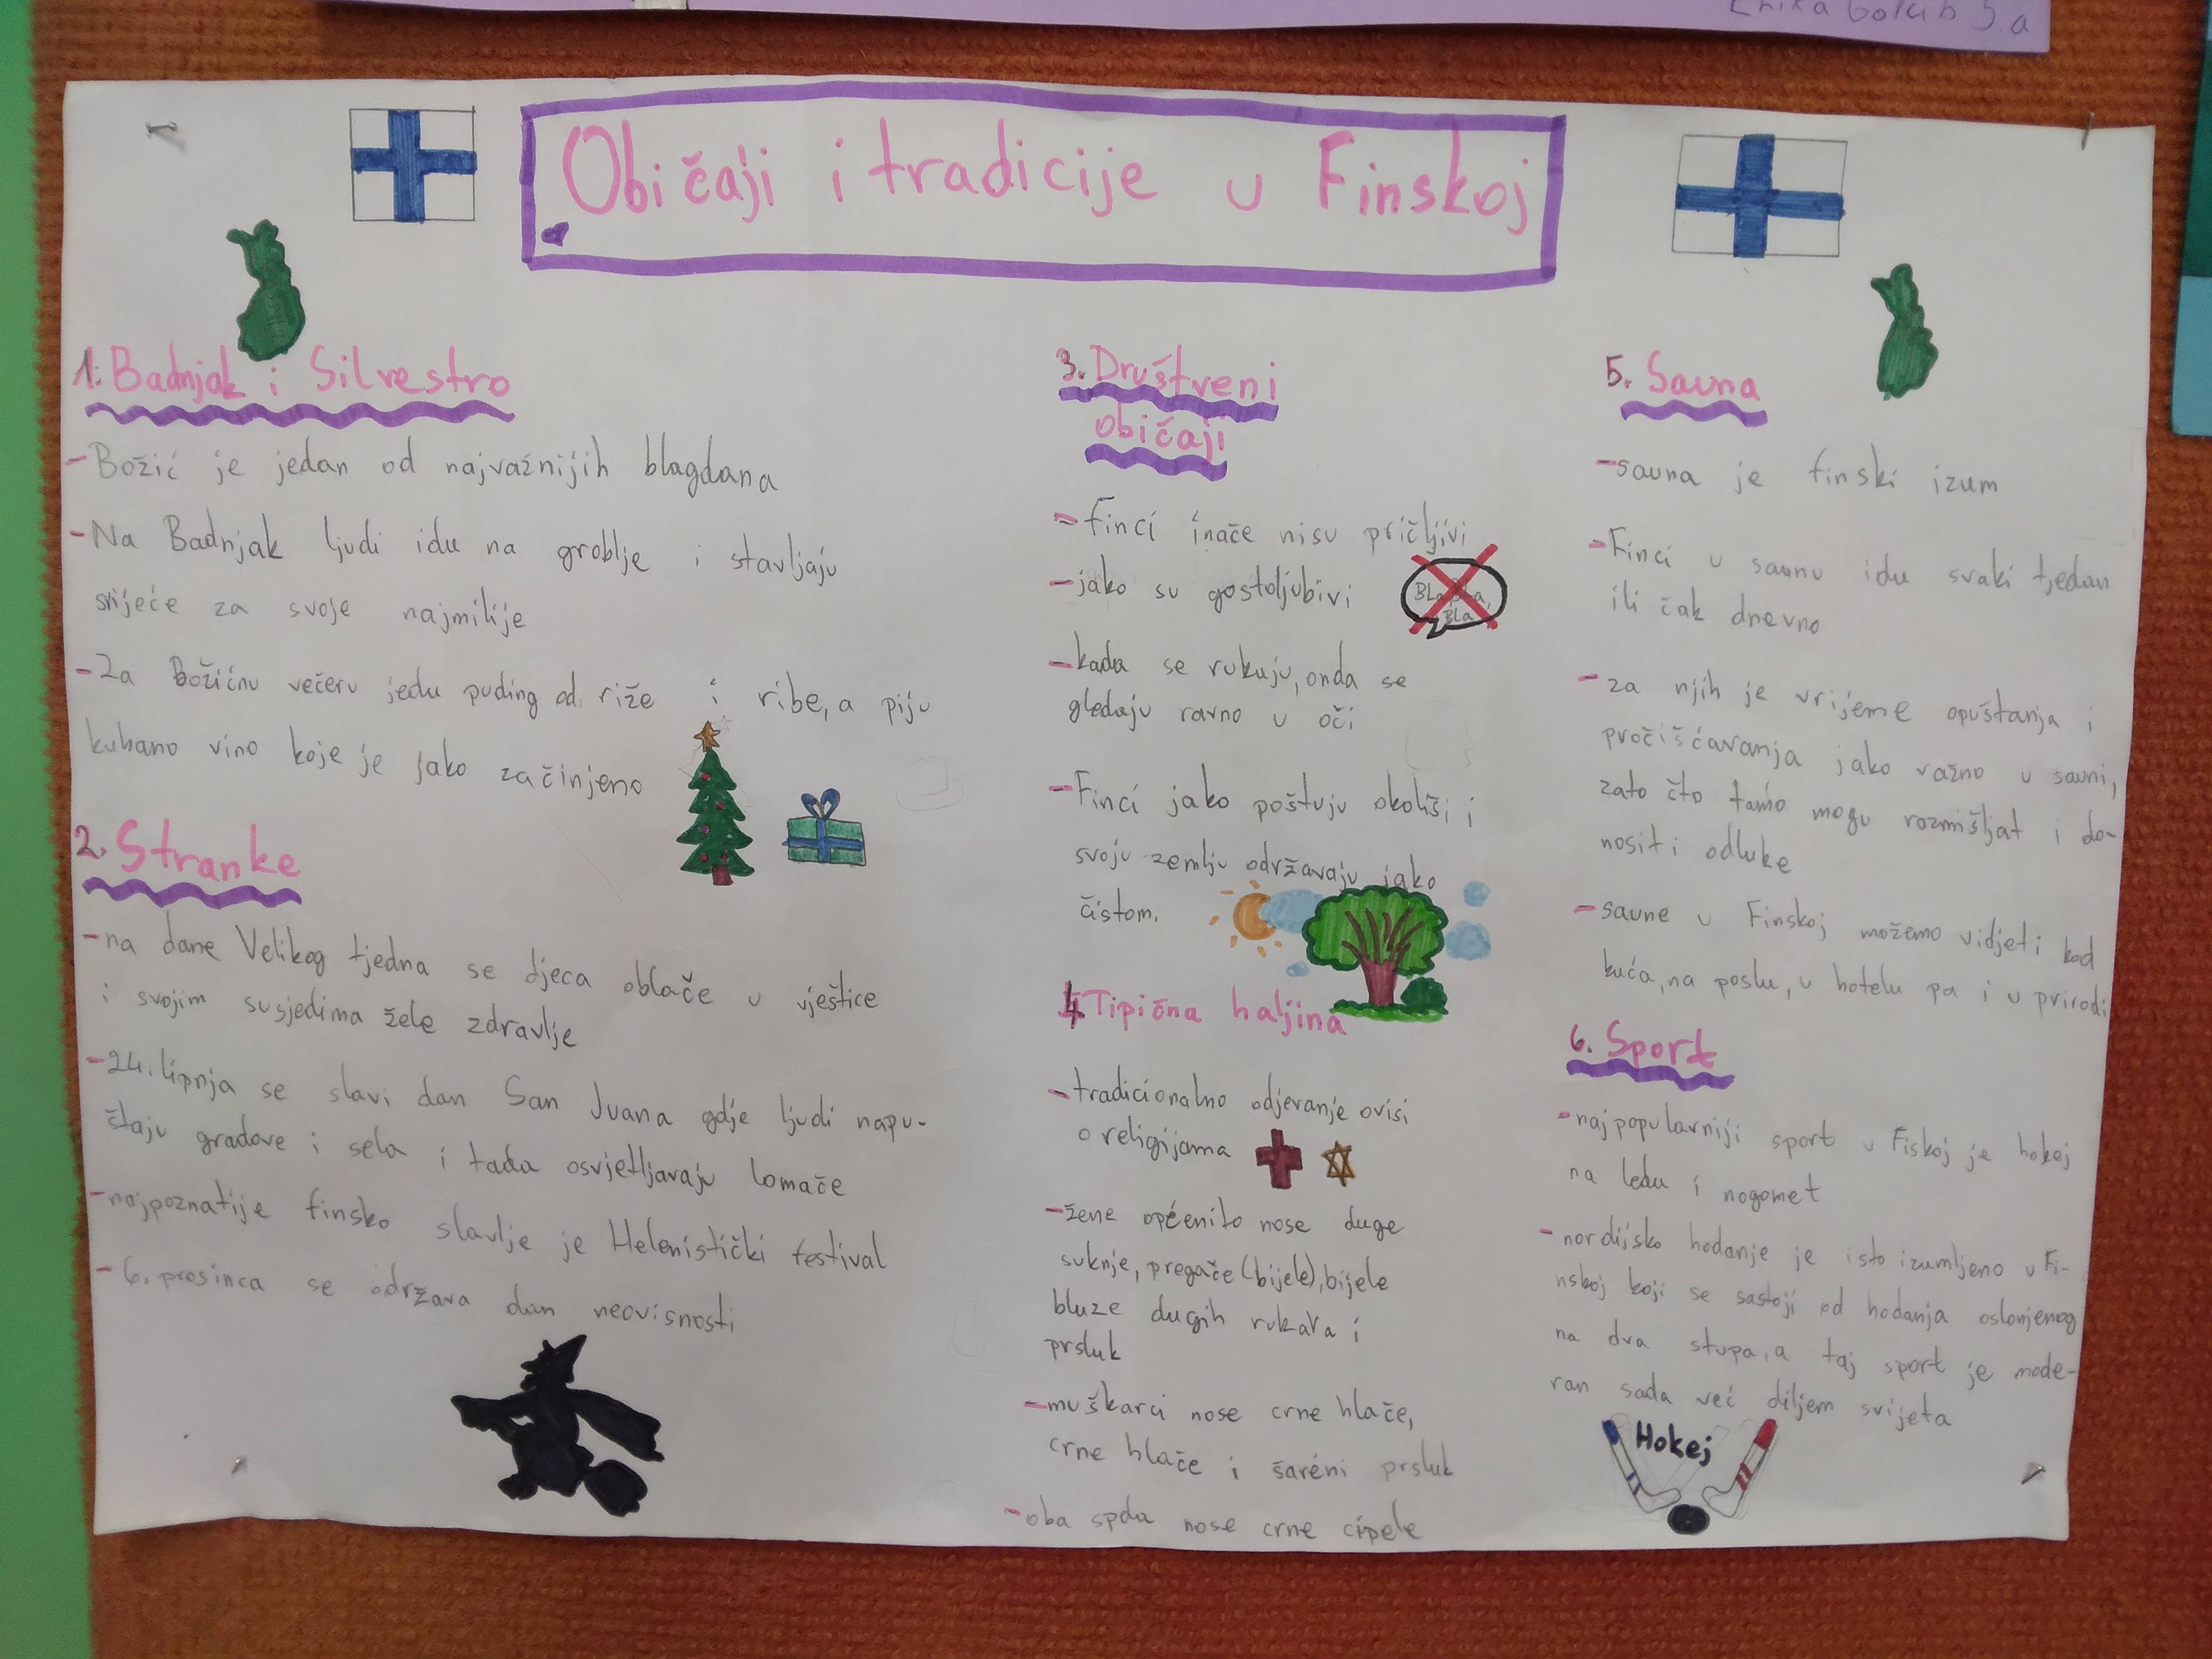 Erika Golub 5.a
Običaji i tradicije u Finskoj
1. Badnjak i Silvestro
-Božić je jedan od najvažnijih blagdana
-Na Badnjak ljudi idu na groblje i stavljaju
svijeće za svoje najmilije
-Za Božićnu večeru jedu puding od riže i ribe, a piju
kuhano vino koje je jako začinjeno
2. Stranke
-na dane Velikog tjedna se djeca oblače u vještice
i svojim susjedima žele zdravlje
-24. lipnja se slavi dan San Juana gdje ljudi napu-
štaju gradove i sela i tada osvjetljavaju lomače
-najpoznatije finsko slavlje je Helenistički festival
-6. prosinca se održava dan neovisnosti
3. Društveni
običaji
-Finci inače nisu pričljivi
-jako su gostoljubivi
Bla, Bla,
Bla
-kada se rukuju, onda se
gledaju ravno u oči
-Finci jako poštuju okoliši i
svoju zemlju održavaju jako
čistom.
4 Tipična haljina
-tradicionalno odjevanje ovisi
o religijama
-žene općenito nose duge
suknje, pregače (bijele), bijele
bluze dugih rukava i
prsluk
-muškarci nose crne hlače,
crne hlače i šareni prsluk
-oba spola nose crne cipele
5. Sauna
-sauna je finski izum
-Finci u saunu idu svaki tjedan
ili čak dnevno
-za njih je vrijeme opuštanja i
pročišćavanja jako važno u sauni,
zato čto tamo mogu razmišljat i do-
nositi odluke
-saune u Finskoj možemo vidjeti kod
kuća, na poslu, u hotelu pa i u prirodi
6. Sport
-najpopularniji sport u Fiskoj je hokej
na ledu i nogomet
-nordijsko hodanje je isto izumljeno u Fi-
nskoj koji se sastoji od hodanja oslonjenog
na dva stupa, a taj sport je mode-
ran sada već diljem svijeta
Hokej